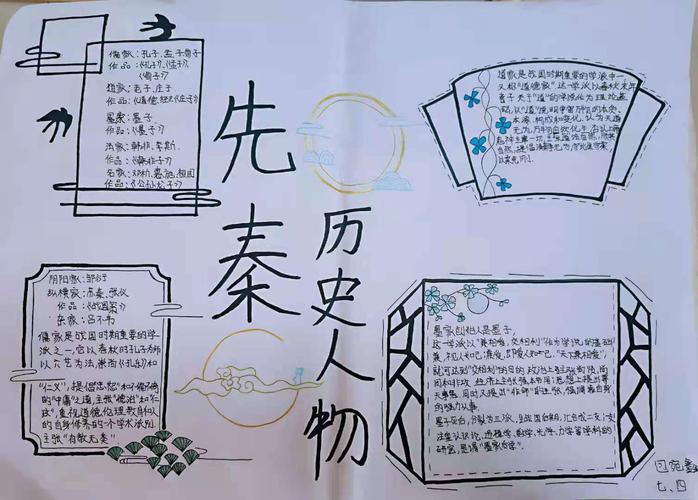 先秦
历史人物
儒家：孔子、孟子、荀子
作品：《孔子》、《孟子》
《荀子》
道家：老子、庄子
作品：《道德经》《庄子》
墨家：墨子
作品：《墨子》
法家：韩非、李斯、
作品：《韩非子》
名家：邓析、惠施、
作品：《公孙龙子》
道家是战国时期重要的学派中一
又称"道德家"这一学派以春秋末年
老子关于"道"的学说作为理论基
础，以"道"说明宇宙万物的本质、
本源、构成和变化，认为天道
无为，万物自然化生，否认上帝
自然，提倡清静无为
阴阳家：邹衍
纵横家：苏秦、张仪
作品：《战国策》
杂家：吕不韦
儒家是战国时期重要的学
派之一，它以春秋的孔子为师
以六艺为法，崇尚《礼乐》和
"仁义"，提倡"忠恕"和不偏不倚
的"中庸"之道，主张"德治"和"仁
政"，重视道德伦理教育和人
的自身修养的一个学术派别
主张"有教无类"
墨家创始人是墨子，
这一学派以"兼相爱，交相利"作为学说的基础
兼，视人如己；兼爱，即爱人如己。"天下兼相爱"，
就可达到"交相利"的目的，政治上主张尚贤，尚
同和非攻，经济上主张强本节用；思想上提出尊
天事鬼，同时又提出"非命"的主张，强调靠自身
的强力从事。
墨子死后，分裂为三派，至战国后期，汇合成二支：一支
注重认识论、逻辑学、数学、光学、力学等学科的
研究，是谓"墨家后学"。
七、四